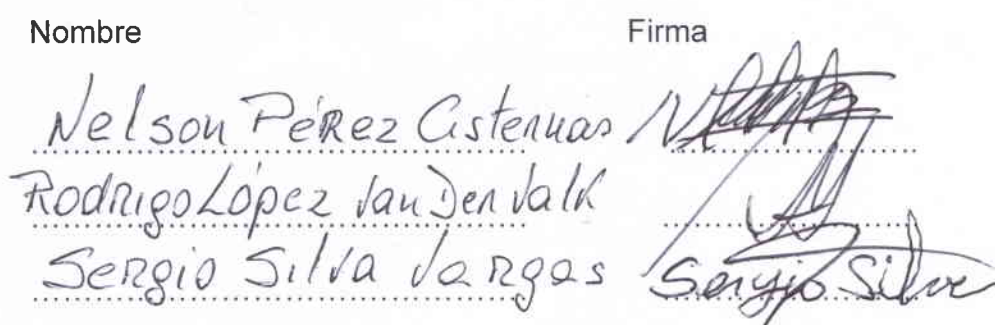 Nombre Firma
Nelson Pérez Cisternas
Rodrigo López Van Den Valk
Sergio Silva Vargas Sergio Silva